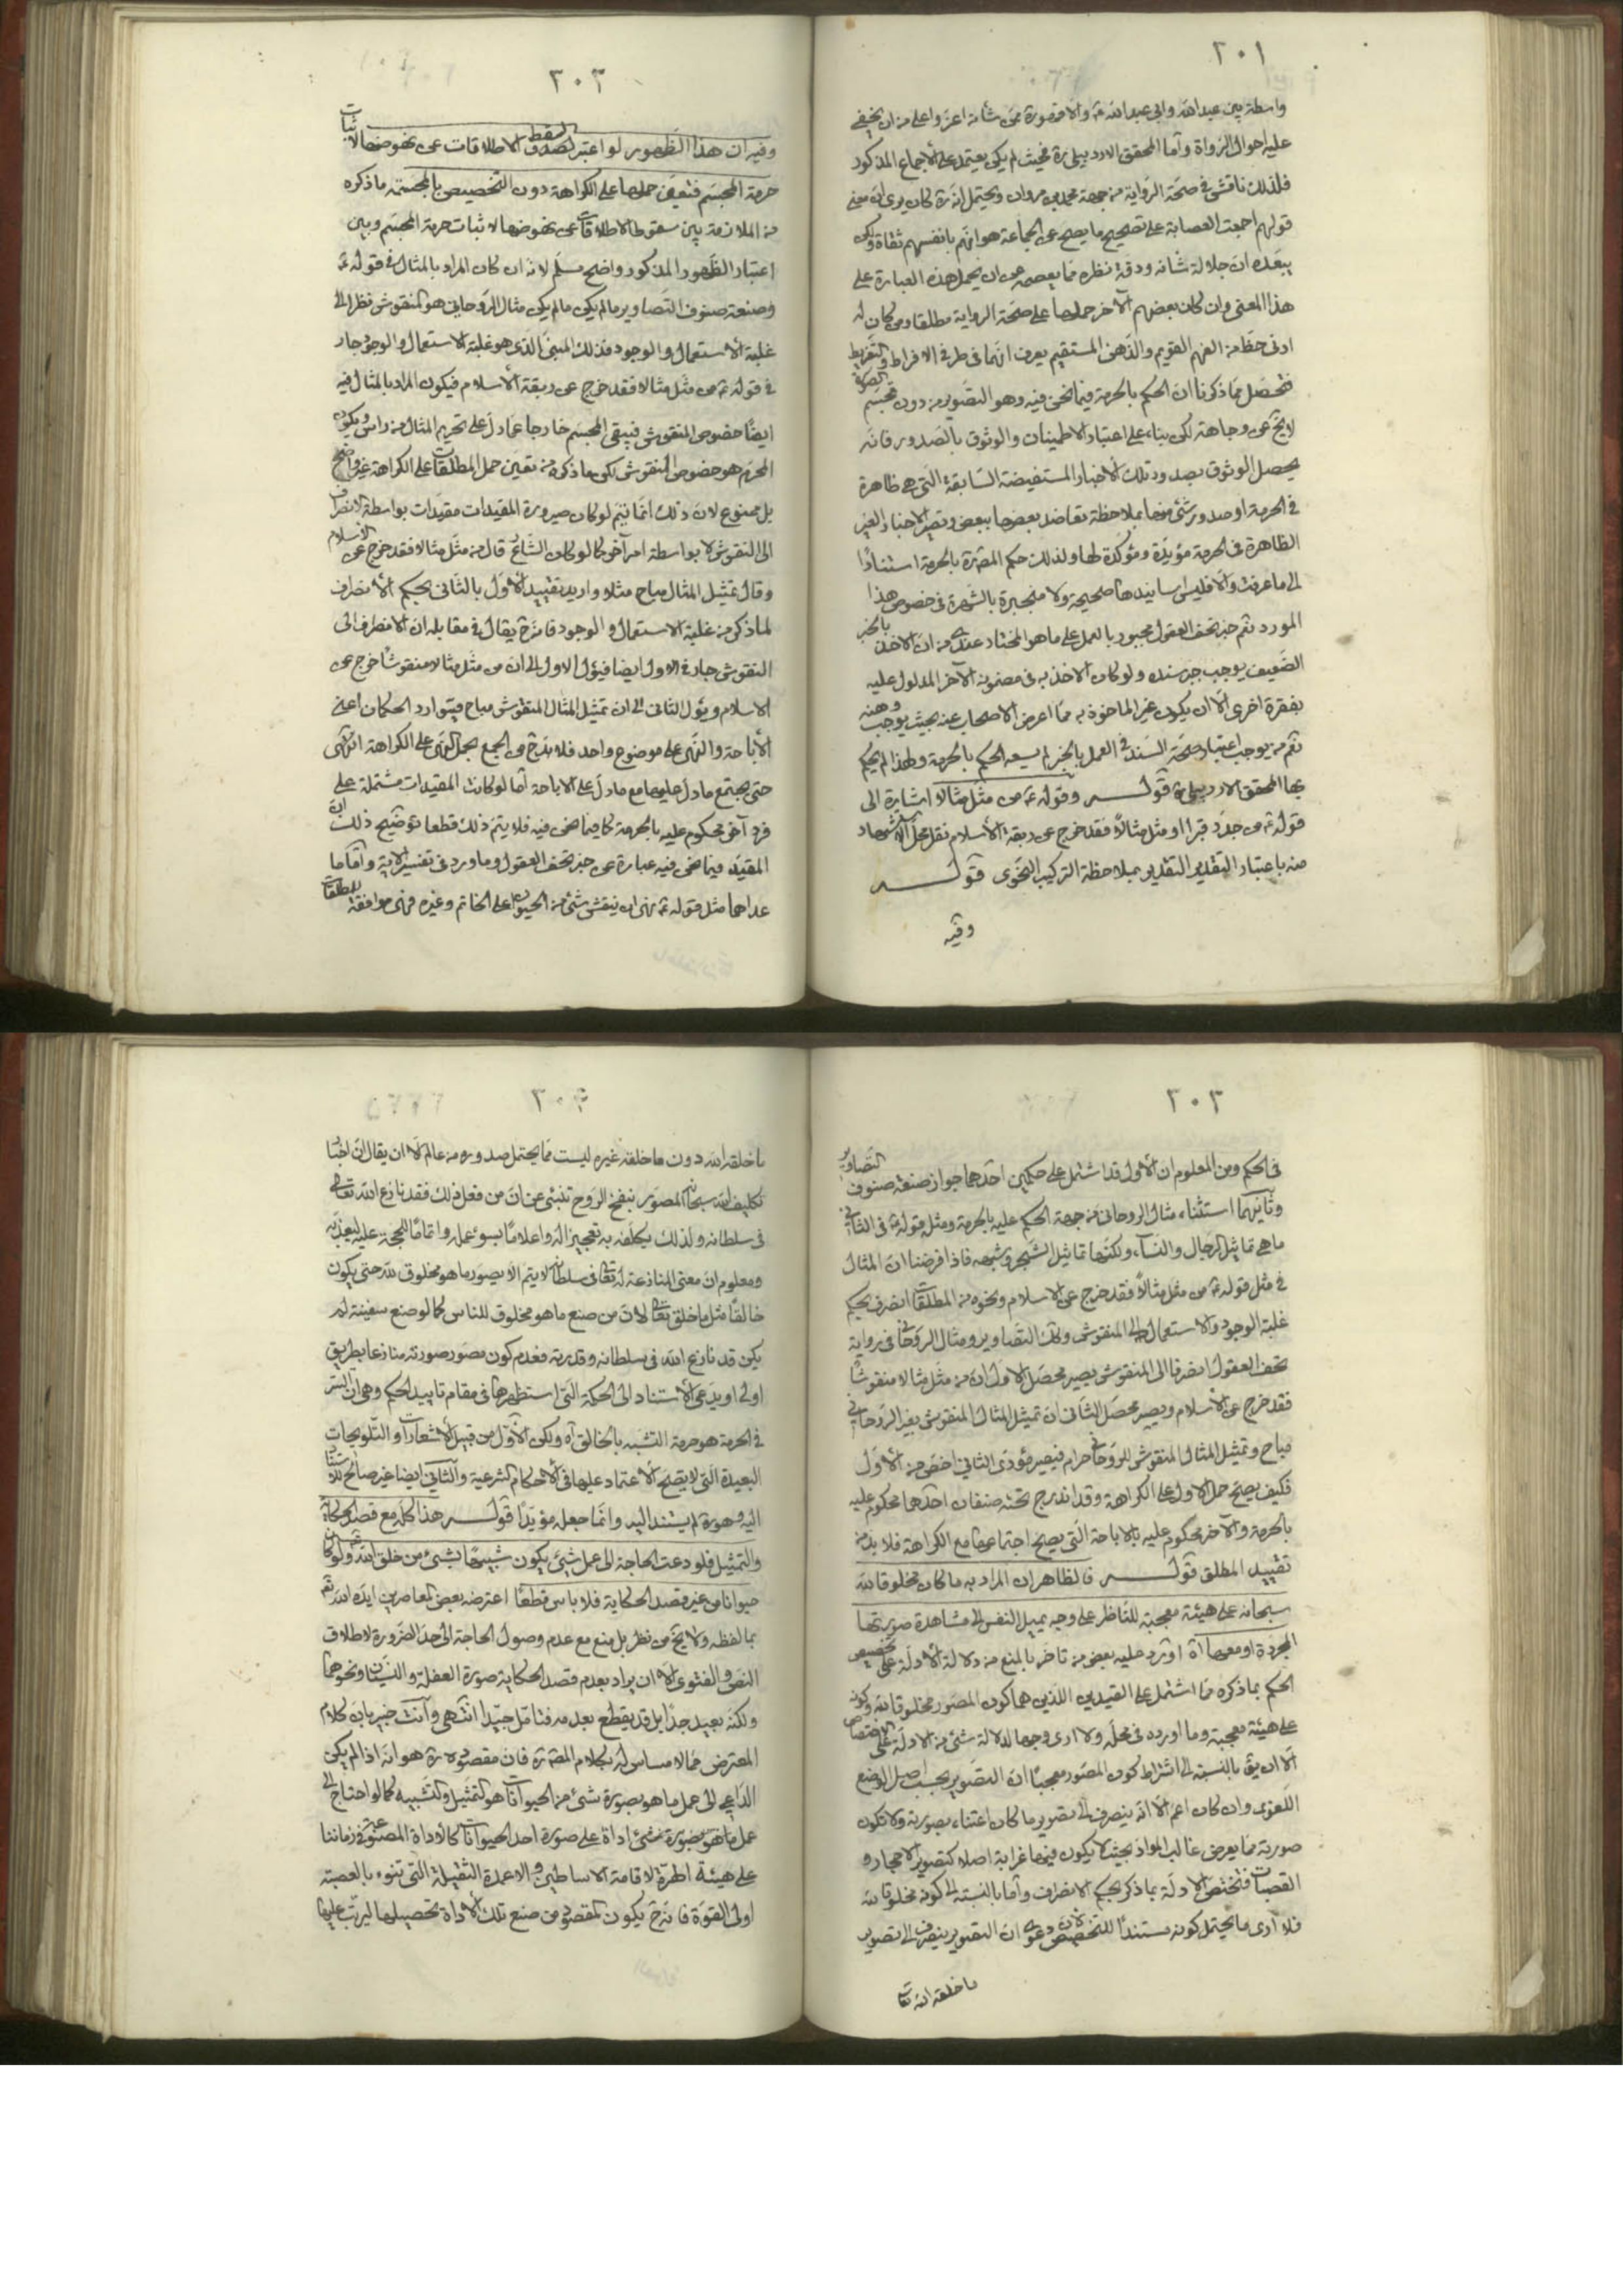 ٢٠١
واسطة بين عبدالله وابي عبدالله ع والا فصورة من شأنه اعز واعلى من ان يخفى
عليه احوال الرواة وأما المحقق الاردبيلى ره فحيث لم يكن يعتمد على الأجماع المذكور
فلذلك ناقش فى صحة الرواية من جهة محمد بن مروان ويحتمل انه ره كان يرى ان معنى
قولهم اجمعت العصابة على تصحيح ما يصح عن الجماعة هو انهم بانفسهم ثقاة ولكن
يبعده ان جلالة شأنه ودقة نظره مما يعصمه عن ان يحمل هذه العبارة على
هذا المعنى وان كان بعضهم الآخر حملها على صحة الرواية مطلقا ومن كان له
ادنى حظ من الفهم القويم والذهن المستقيم يعرف انهما فى طرفى الافراط والتفريط
فتحصل مما ذكرنا ان الحكم بالحرمة فيما نحن فيه وهو التصوير من دون تجسيم الصورة
لا يخ عن وجاهة لكن بناء على اعتبار الاطمينان والوثوق بالصدور فانه
يحصل الوثوق بصدور تلك الأخبار المستفيضة السابقة التى هى ظاهرة
فى الحرمة او صدور شئ منها بملاحظة تعاضد بعضها ببعض وتصير الاخبار الغير
الظاهرة فى الحرمة مؤيدة ومؤكدة لها ولذلك حكم المص ره بالحرمة استنادا
الى ما عرفت والا فليس اسانيدها صحيحة ولا منجبرة بالشهرة فى خصوص هذا
المورد نعم خبر تحف العقول مجبور بالعمل على ما هو المختار عندى من ان الاخذ بالخبر
الضعيف يوجب جبر سنده ولو كان الاخذ به فى مضمونه الآخر المدلول عليه
بفقرة اخرى الا ان يكون غير الماخوذ به مما اعرض الاصحاب عنه بحيث يوجب وهنه
نعم من يوجب اعتبار صحة السند فى العمل بالخبر لم يسعه الحكم بالحرمة ولهذا لم يحكم
بها المحقق الاردبيلى ره قوله وقوله ع من مثل مثالا اشارة الى
قوله ع من جدد قبرا او مثل مثالا فقد خرج عن ربقة الأسلام نقل محل الاستشهاد
منه باعتبار التقدير التقديرى بملاحظة التركيب النحوى قوله
وفيه
٢٠٢
وفيه ان هذا الظهور لو اعتبر لسقط الاطلاقات عن نهوضها لاثبات
حرمة المجسم فتعين حملها على الكراهة دون التخصيص بالمجسمة ما ذكره
من الملازمة بين سقوط الاطلاقات عن نهوضها لاثبات حرمة المجسم وبين
اعتبار الظهور المذكور واضح مسلم لانه ان كان المراد بالمثال فى قوله ع
وصنعة صنوف التصاوير ما لم يكن مثال الروحانى هو المنقوش نظرا الى
غلبة الأستعمال والوجود فذلك المبنى الذى هو غلبة الاستعمال والوجود جار
فى قوله ع من مثل مثالا فقد خرج عن ربقة الأسلام فيكون المراد بالمثال فيه
ايضا خصوص المنقوش فيبقى المجسم خارجا عما دل على تحريم المثال من راس ويكون
المحرم هو خصوص المنقوش لكن ما ذكره من تعين حمل المطلقات على الكراهة غير واضح
بل ممنوع لان ذلك انما يتم لو كان صيرورة المقيدات مقيدات بواسطة الانصراف
الى النقوش لا بواسطة امر آخر كما لو كان الشارع قال من مثل مثالا فقد خرج عن الاسلام
وقال تمثيل المثال مباح مثلا واريد تقييد الأول بالثانى بحكم الأنصراف
لما ذكر من غلبة الاستعمال والوجود فانه ح يقال فى مقابله ان الانصراف الى
النقوش جار فى الاول ايضا فيؤل الاول الى ان من مثل مثالا منقوشا خرج عن
الاسلام ويؤل الثانى الى ان تمثيل المثال المنقوش مباح فيتوارد الحكمان اعنى
الأباحة والنهى على موضوع واحد فلا بد ح من الجمع بحمل النهى على الكراهة انتهى
حتى يجتمع ما دل عليها مع ما دل على الاباحة اما لو كانت المقيدات مشتملة على
فرد آخر محكوم عليه بالحرمة كما فيما نحن فيه فلا يتم ذلك قطعا توضيح ذلك ان
المقيد فيما نحن فيه عبارة عن خبر تحف العقول وما ورد فى تفسير الآية وأما ما
عداهما مثل قوله ع نهى ان ينقش شئ من الحيوان على الخاتم وغيره فهى موافقة للمطلقات
٢٠٣
فى الحكم ومن المعلوم ان الأول قد اشتمل على حكمين احدهما جواز صنعة صنوف التصاوير
وثانيهما استثناء مثال الروحانى من جهة الحكم عليه بالحرمة ومثل قوله ع فى الثانى
ما هى تماثيل الرجال والنساء ولكنها تماثيل الشجر وشبهه فاذا فرضنا ان المثال
فى مثل قوله ع من مثل مثالا فقد خرج عن الاسلام ونحوه من المطلقات انصرف بحكم
غلبة الوجود والاستعمال الى المنقوش وان التصاوير ومثال الروحانى فى رواية
تحف العقول انصرفا الى المنقوش يصير محصل الاول ان من مثل مثالا منقوشا
فقد خرج عن الأسلام ويصير محصل الثانى ان تمثيل المثال المنقوش بغير الروحانى
مباح وتمثيل المثال المنقوش للروحانى حرام فيصير مؤدى الثانى اخص من الأول
فكيف يصح حمل الاول على الكراهة وقد اندرج تحته صنفان احدهما محكوم عليه
بالحرمة والآخر محكوم عليه بالاباحة التى يصح اجتماعها مع الكراهة فلا بد من
تقييد المطلق قوله فالظاهر ان المراد به ما كان مخلوقا لله
سبحانه على هيئة معجبة للناظر على وجه يميل النفس الى مشاهدة صورتها
المجردة او معها اه اورد عليه بعض من تاخر بالمنع من دلالة الأدلة على تخصيص
الحكم بما ذكره مما اشتمل على القيدين اللذين هما كون المصور مخلوقا لله وكونه
على هيئة معجبة وما اورده فى محله ولا ارى وجها لدلالة شئ من الادلة على الاختصاص
الا ان يق بالنسبة الى اشتراط كون المصور معجبا ان التصوير بحسب اصل الوضع
اللغوى وان كان اعم الا انه ينصرف الى تصوير ما كان اعتناء بصورته ولا تكون
صورته مما يعرض غالب المواد بحيث لا يكون فيها غرابة اصلا كتصوير الاحجار و
القصبات فتختص الادلة بما ذكر بحكم الانصراف وأما بالنسبة الى كونه مخلوقا لله
فلا ارى ما يحتمل كونه مستندا للتخصيص لان دعوى ان التصوير ينصرف الى تصوير
ما خلقه الله تعالى
٢٠٤
ما خلقه الله دون ما خلقه غيره ليست مما يحتمل صدوره من عالم الا ان يقال ان اخبار
تكليف الله سبحانه المصور بنفخ الروح تنبئ عن ان من فعل ذلك فقد نازع الله تعالى
فى سلطانه ولذلك يكلفه به تعجيزا له واعلاما بسوء عمله واتماما للحجة عليه ليعذبه
ومعلوم ان معنى المنازعة له تعالى فى سلطانه لا يتم الا بصور ما هو مخلوق لله حتى يكون
خالقا مثل ما خلق تعالى لان من صنع ما هو مخلوق للناس كما لو صنع سفينة لم
يكن قد نازع الله فى سلطانه وقدرته فعدم كون مصور صورته منازعا بطريق
اولى او يدعى الأستناد الى الحكمة التى استظهرها فى مقام تاييد الحكم وهى ان السر
فى الحرمة هو حرمة التشبه بالخالق اه ولكن الأول من قبيل الأشعارات او التلويحات
البعيدة التى لا يصح الأعتماد عليها فى الأحكام الشرعية والثانى ايضا غير صالح للاستناد
اليه وهو ره لم يستند اليه وانما جعله مؤيدا قوله هذا كله مع قصد الحكاية
والتمثيل فلو دعت الحاجة الى عمل شئ يكون شبيها بشئ من خلق الله ولو كان
حيوانا من غير قصد الحكاية فلا باس قطعا اعترضه بعض المعاصرين ايده الله تع
بما لفظه ولا يخ من نظر بل منع مع عدم وصول الحاجة الى حد الضرورة لاطلاق
النص والفتوى الا ان يراد بعدم قصد الحكاية صورة الغفلة والنسيان ونحوهما
ولكنه بعيد جدا بل قد يقطع بعدمه فتامل جيدا انتهى وأنت خبير بان كلام
المعترض مما لا مساس له بكلام المص ره فان مقصوده ره هو انه اذا لم يكن
الداعى الى عمل ما هو بصورة شئ من الحيوانات هو التمثيل والتشبيه كما لو احتاج الى
عمل ما هو بصورة شئ اداة على صورة احد الحيوانات كالأداة المصنوعة فى زماننا
على هيئة لاقامة الاساطين والاعمدة الثقيلة التى تنوء بالعصبة
اولى القوة فانه ح يكون المقصود من صنع تلك الأداة تحصيلها ليرتب عليها